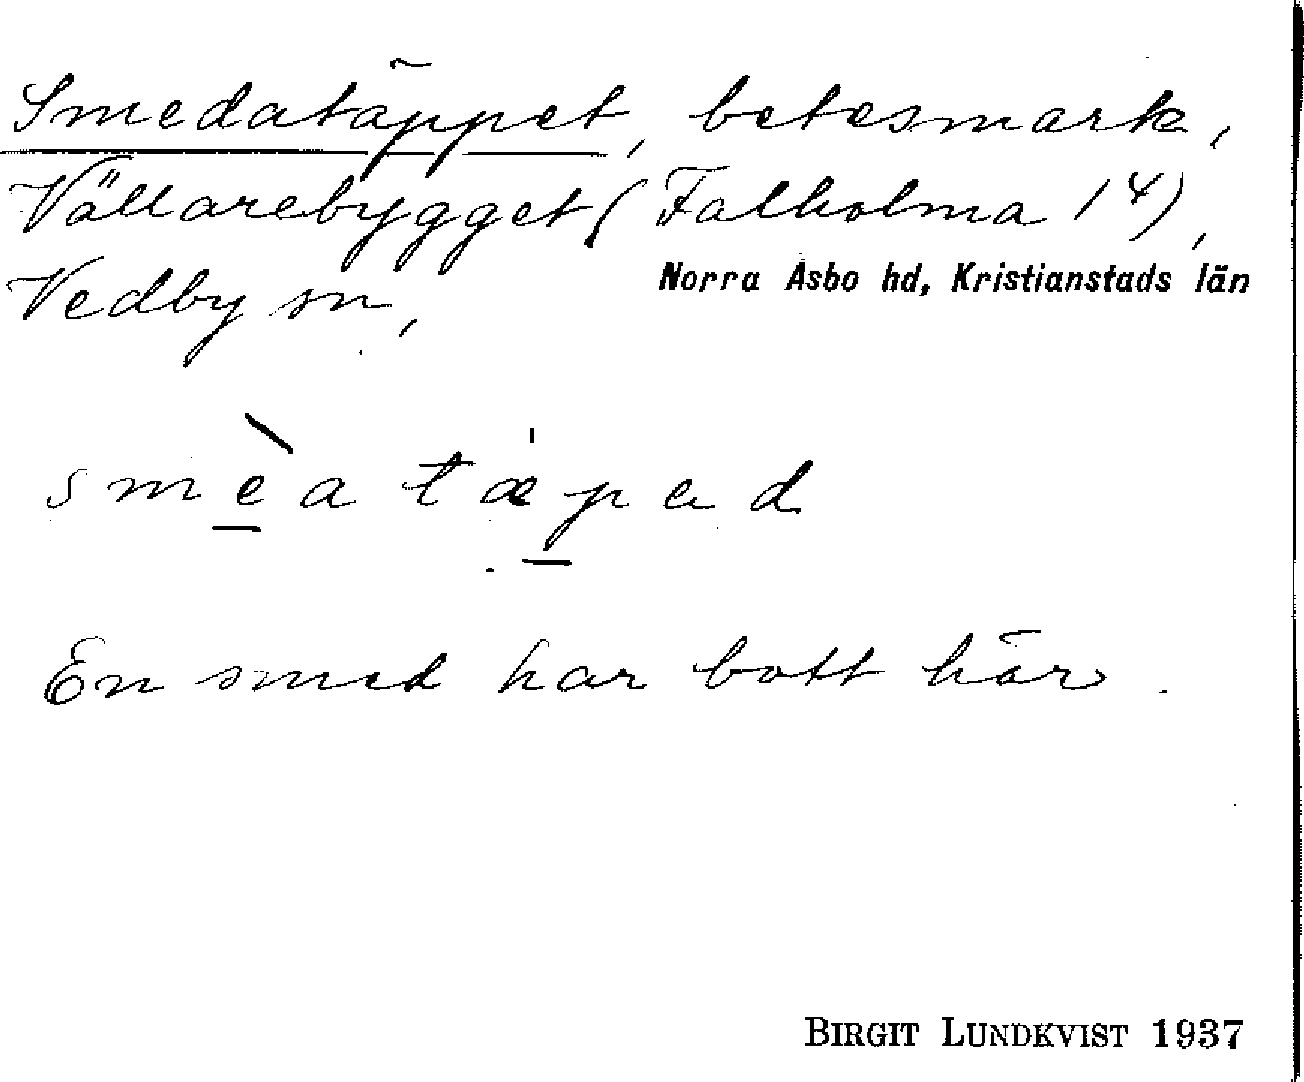 Smedatäppet, betesmark,
Vällarebygget (Falholma 1⁴),
Vedby sn, Norra Åsbo hd, Kristianstads län
smèatæpad
En smed har bott här.
BIRGIT LUNDKVIST 1937